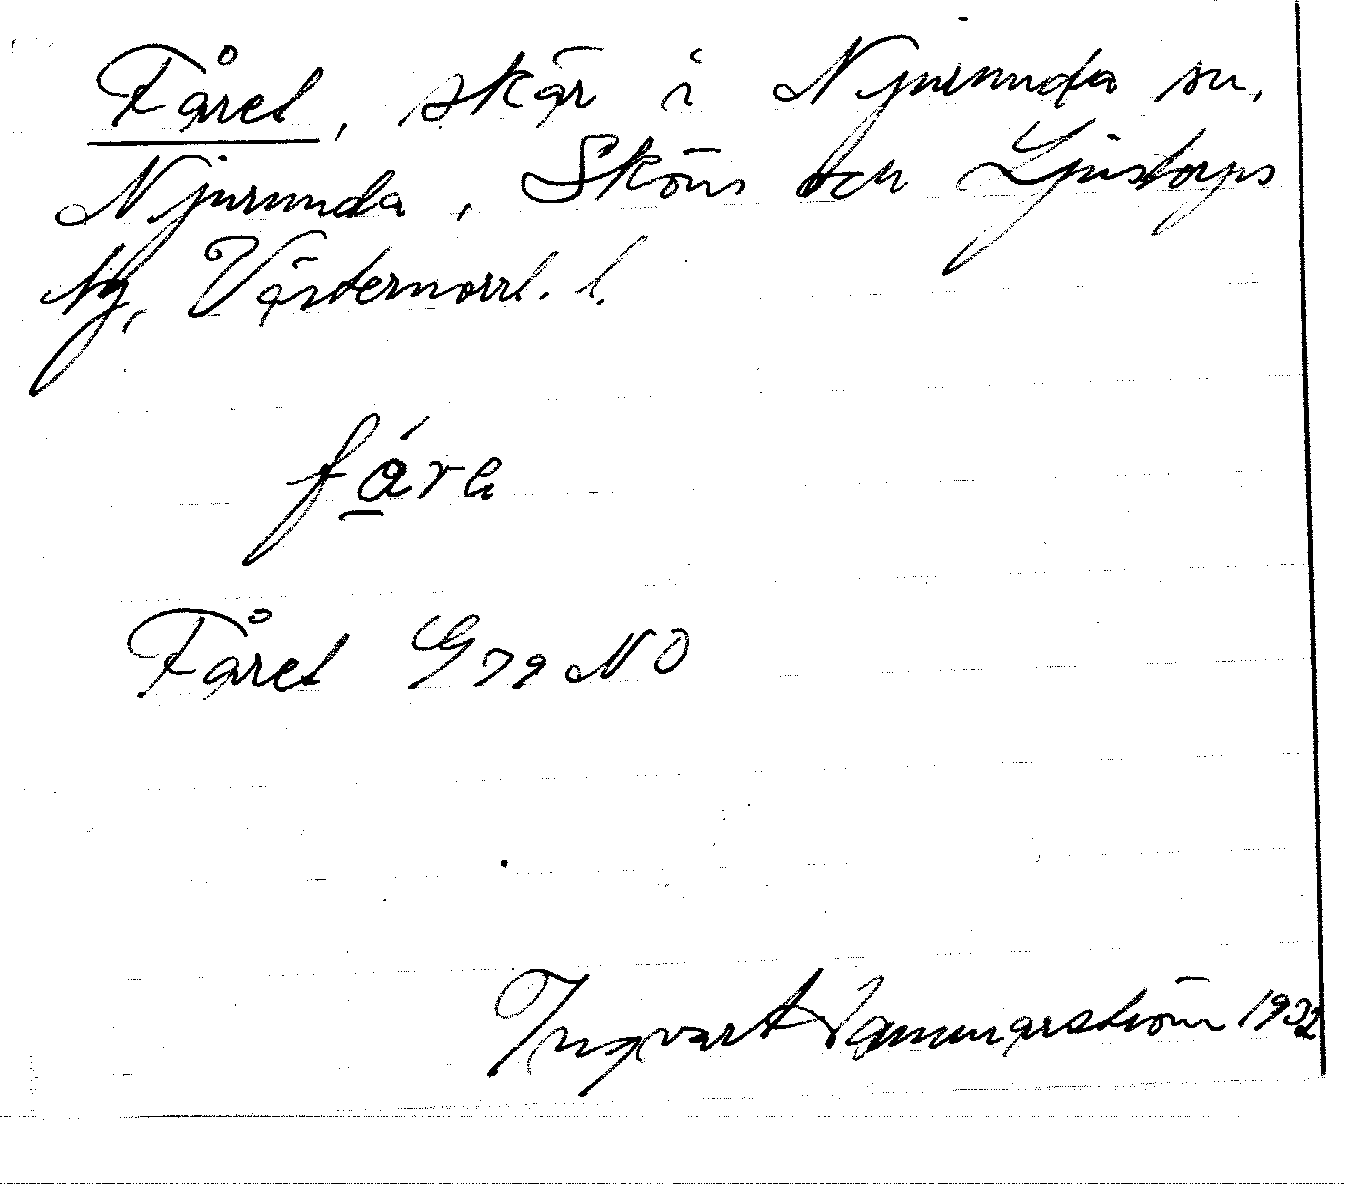 Fåret, skär i Njurunda sn,
Njurunda, Sköns och Ljustorps
tg, Västernorrl. l.
fára
Fåret G79 NO
Ingvart Hammarström 1932